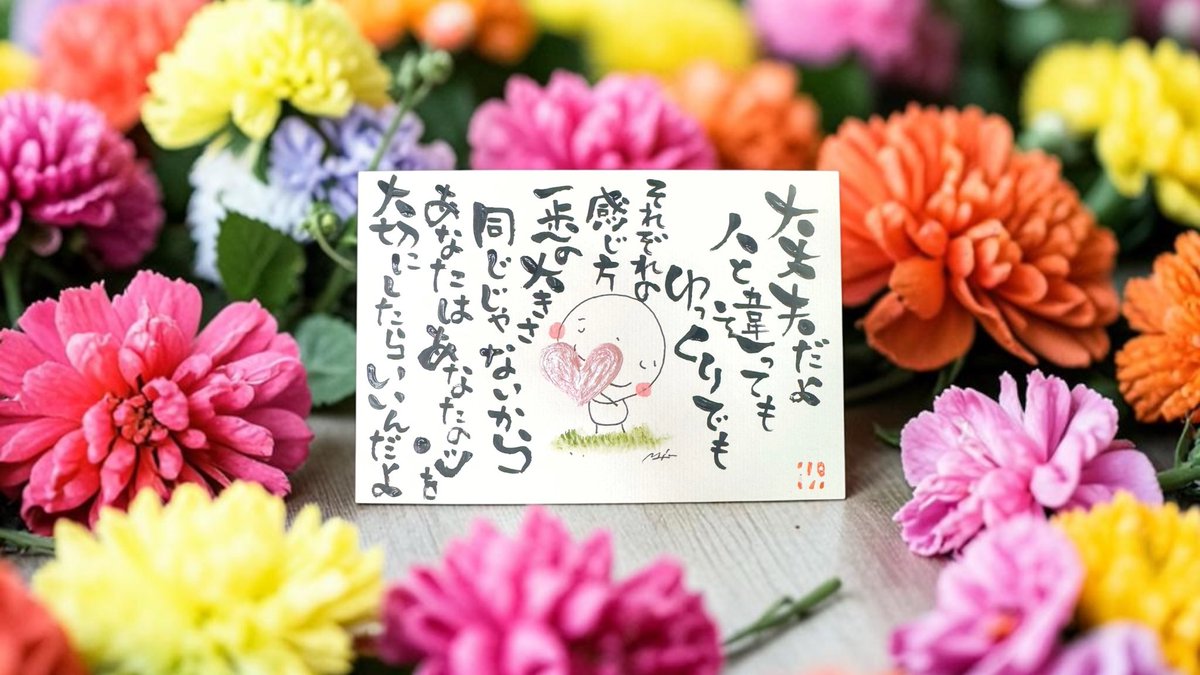 大丈夫だよ
人と違っても
ゆっくりでも
それぞれの
感じ方
一歩の大きさ
同じじゃないから
あなたはあなたの心を
大切にしたらいいんだよ